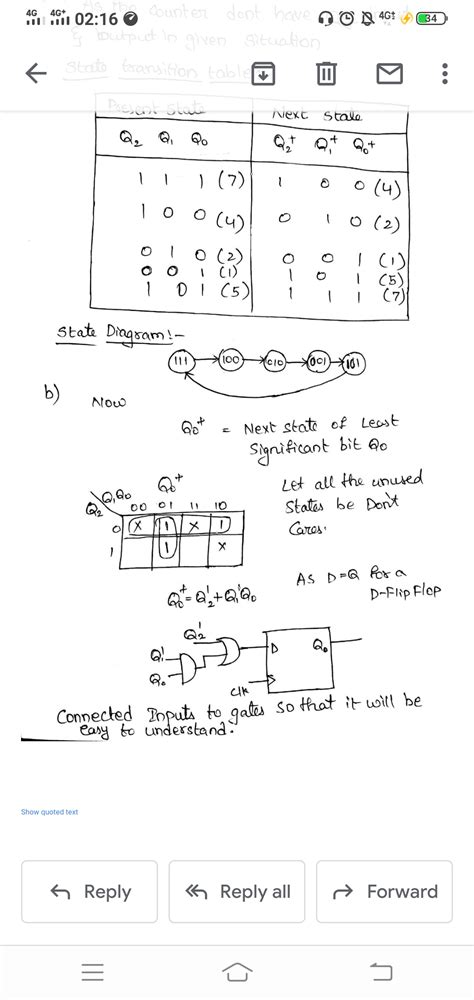 4G 4G+ 02:16 4G 34
As the counter dont have
& output in given situation
State transition table
Present State Next State
Q2 Q1 Q0 Q2+ Q1+ Q0+
1 1 1 (7) 1 0 0 (4)
1 0 0 (4) 0 1 0 (2)
0 1 0 (2) 0 0 1 (1)
0 0 1 (1) 1 0 1 (5)
1 0 1 (5) 1 1 1 (7)
State Diagram:-
111 100 010 001 101
b) Now
Q0+ = Next state of Least
Significant bit Q0
Q0+
Q2 Q1Q0 00 01 11 10
0 X 1 X 1
1 1 X
Let all the unused
States be Don't
Cares.
Q0+ = Q2' + Q1'Q0
As D=Q for a
D-FlipFlop
Q2'
Q1'
Q0
D Q0
Clk
Connected Inputs to gates so that it will be
easy to understand.
Show quoted text
Reply Reply all Forward